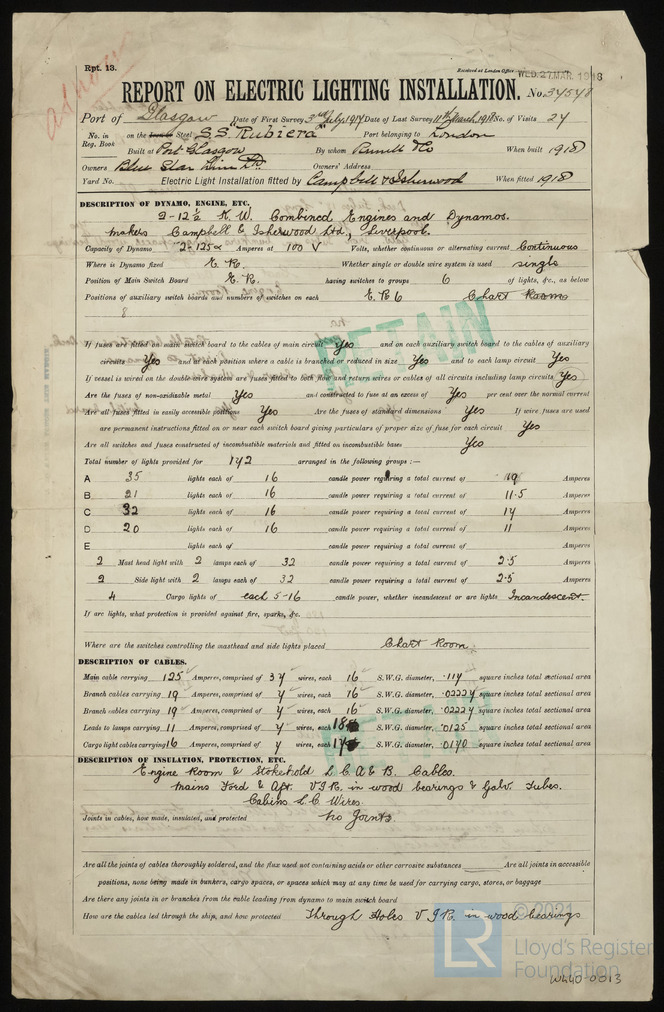 Rpt. 13.
Received at London Office WED. 27 MAR. 1918
REPORT ON ELECTRIC LIGHTING INSTALLATION. No. 34548
Port of Glasgow Date of First Survey 3rd July, 1917 Date of Last Survey 11th March 1918 No. of Visits 24
No. in Reg. Book on the Iron or Steel S.S. "Rubiera" Port belonging to London
Built at Port Glasgow By whom When built 1918
Owners Blue Star Line Ld. Owners' Address
Yard No. Electric Light Installation fitted by Campbell & Isherwood When fitted 1918
DESCRIPTION OF DYNAMO, ENGINE, ETC.
2-12½ K.W. Combined Engines and Dynamos.
makers Campbell & Isherwood Ltd., Liverpool.
Capacity of Dynamo 2-125 Amperes at 100 V Volts, whether continuous or alternating current Continuous
Where is Dynamo fixed E.R. Whether single or double wire system is used single
Position of Main Switch Board E.R. having switches to groups 6 of lights, &c., as below
Positions of auxiliary switch boards and numbers of switches on each E.R 6 Chart Room
8
If fuses are fitted on main switch board to the cables of main circuit Yes and on each auxiliary switch board to the cables of auxiliary
circuits Yes and at each position where a cable is branched or reduced in size Yes and to each lamp circuit Yes
If vessel is wired on the double wire system are fuses fitted to both flow and return wires or cables of all circuits including lamp circuits Yes
Are the fuses of non-oxidizable metal Yes and constructed to fuse at an excess of Yes per cent over the normal current
Are all fuses fitted in easily accessible positions Yes Are the fuses of standard dimensions Yes If wire fuses are used
are permanent instructions fitted on or near each switch board giving particulars of proper size of fuse for each circuit Yes
Are all switches and fuses constructed of incombustible materials and fitted on incombustible bases Yes
RETAIN
Total number of lights provided for 142 arranged in the following groups :—
A 35 lights each of 16 candle power requiring a total current of 19 Amperes
B 21 lights each of 16 candle power requiring a total current of 11.5 Amperes
C 32 lights each of 16 candle power requiring a total current of 17 Amperes
D 20 lights each of 16 candle power requiring a total current of 11 Amperes
E lights each of candle power requiring a total current of Amperes
2 Mast head light with 2 lamps each of 32 candle power requiring a total current of 2.5 Amperes
2 Side light with 2 lamps each of 32 candle power requiring a total current of 2.5 Amperes
4 Cargo lights of each 5-16 candle power, whether incandescent or arc lights Incandescent
If arc lights, what protection is provided against fire, sparks, &c.
Where are the switches controlling the masthead and side lights placed Chart Room
DESCRIPTION OF CABLES.
Main cable carrying 125 Amperes, comprised of 37 wires, each 16 S.W.G. diameter, .117 square inches total sectional area
Branch cables carrying 19 Amperes, comprised of 7 wires, each 16 S.W.G. diameter, .02227 square inches total sectional area
Branch cables carrying 19 Amperes, comprised of 7 wires, each 16 S.W.G. diameter, .02227 square inches total sectional area
Leads to lamps carrying 11 Amperes, comprised of 7 wires, each 18 S.W.G. diameter, .0125 square inches total sectional area
Cargo light cables carrying 16 Amperes, comprised of 7 wires, each 17 S.W.G. diameter, .0170 square inches total sectional area
RETAIN
DESCRIPTION OF INSULATION, PROTECTION, ETC.
Engine Room & Stokehold L.C. A & B. Cables.
Mains Ford & Aft. V.I.R. in wood bearings & Galv Tubes.
Cabins L.C Wires.
Joints in cables, how made, insulated, and protected No Joints.
Are all the joints of cables thoroughly soldered, and the flux used not containing acids or other corrosive substances Are all joints in accessible
positions, none being made in bunkers, cargo spaces, or spaces which may at any time be used for carrying cargo, stores, or baggage
Are there any joints in or branches from the cable leading from dynamo to main switch board
How are the cables led through the ship, and how protected Through Holes V.I.R. in wood bearings
© 2021
LR Lloyd's Register
Foundation
W440-0013